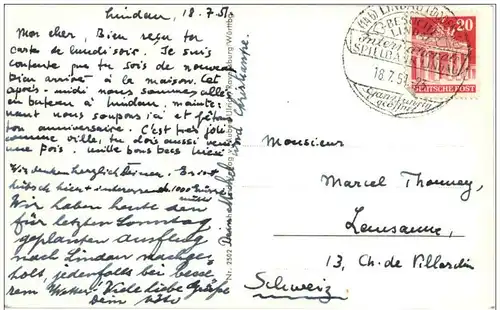 Lindau, 18.7.51
Mon cher, Bien reçu ta
carte de lundi soir. Je suis
contente que tu sois de nouveau
bien arrivé à la maison. Cet
après-midi nous sommes allés
en bateau à Lindau, mainte-
nant nous soupons ici et fêtons
ton anniversaire. C'est très joli
comme ville, tu dois aussi venir
une fois. mille bons becs
Wir denken herzlich Deiner. Es ist
hübsch hier + 1000 Küsse
Mutter
Wir haben heute den
für letzten Sonntag
geplanten Ausflug
nach Lindau nachge-
holt, jedenfalls bei besse-
rem Wetter. Viele liebe Grüße
Dein
Dein Michel und Christiane.
Nr. 2502
Ravensburg Württbg.
LINDAU (BODENSEE)
Internationale
SPIELBANK
18.7.51
Ganzjährig
geöffnet
20
DEUTSCHE POST
Monsieur
Marcel Thonney,
Lausanne,
13, Ch. de Villardin
Schweiz